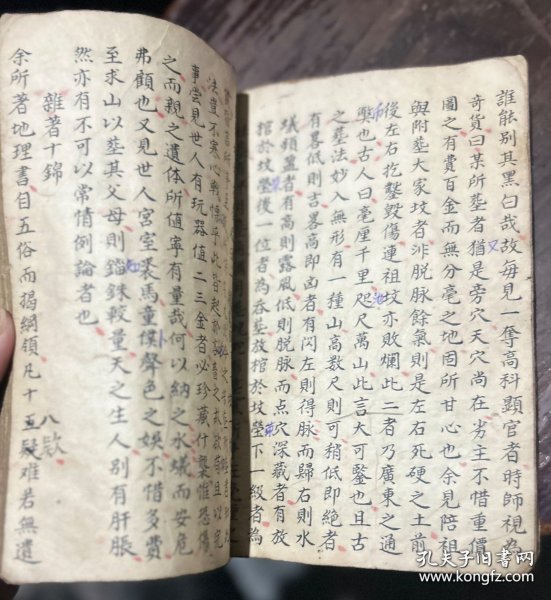 誰能別其黑白哉故每見一奪高科顯官者時師視為
又
奇貨曰某所塟者猶是旁穴天穴尚在劣主不惜重價
圖之有費百金而無分毫之地固所甘心也余見陪祖
與附塟大家坟者非脱脉餘氣則是左右死硬之土前
後左右挖鑿毀傷連祖坟亦敗爛此二者乃廣東之通
弊也古人曰毫厘千里咫尺萬山此言大可鑒也且古
之塟法妙入無形有一種山高数尺則可稍低即絶者
有畧低則吉畧高即凶者有閃左則得脉而歸右則水
蟻頻至者有高則露風低則脱脉而点穴深藏者有放
棺於坟塋後一位者為吞塟放棺於坟塋下一級者為
事尝見世人有玩器值二三金者必珍藏什襲惟恐傷
之而親之遺体所值寧有量哉何以納之水蟻而安危
弗顧也又見世人宮室裘馬童僕聲色之娛不惜多費
至求山以塟其父母則錙銖較量天之生人別有肝脹
然亦有不可以常情例論者也
雜著十錦
八欵
余所著地理書目五俗而揭綱領凡十五疑难若無遺
孔夫子旧书网
www.kongfz.com